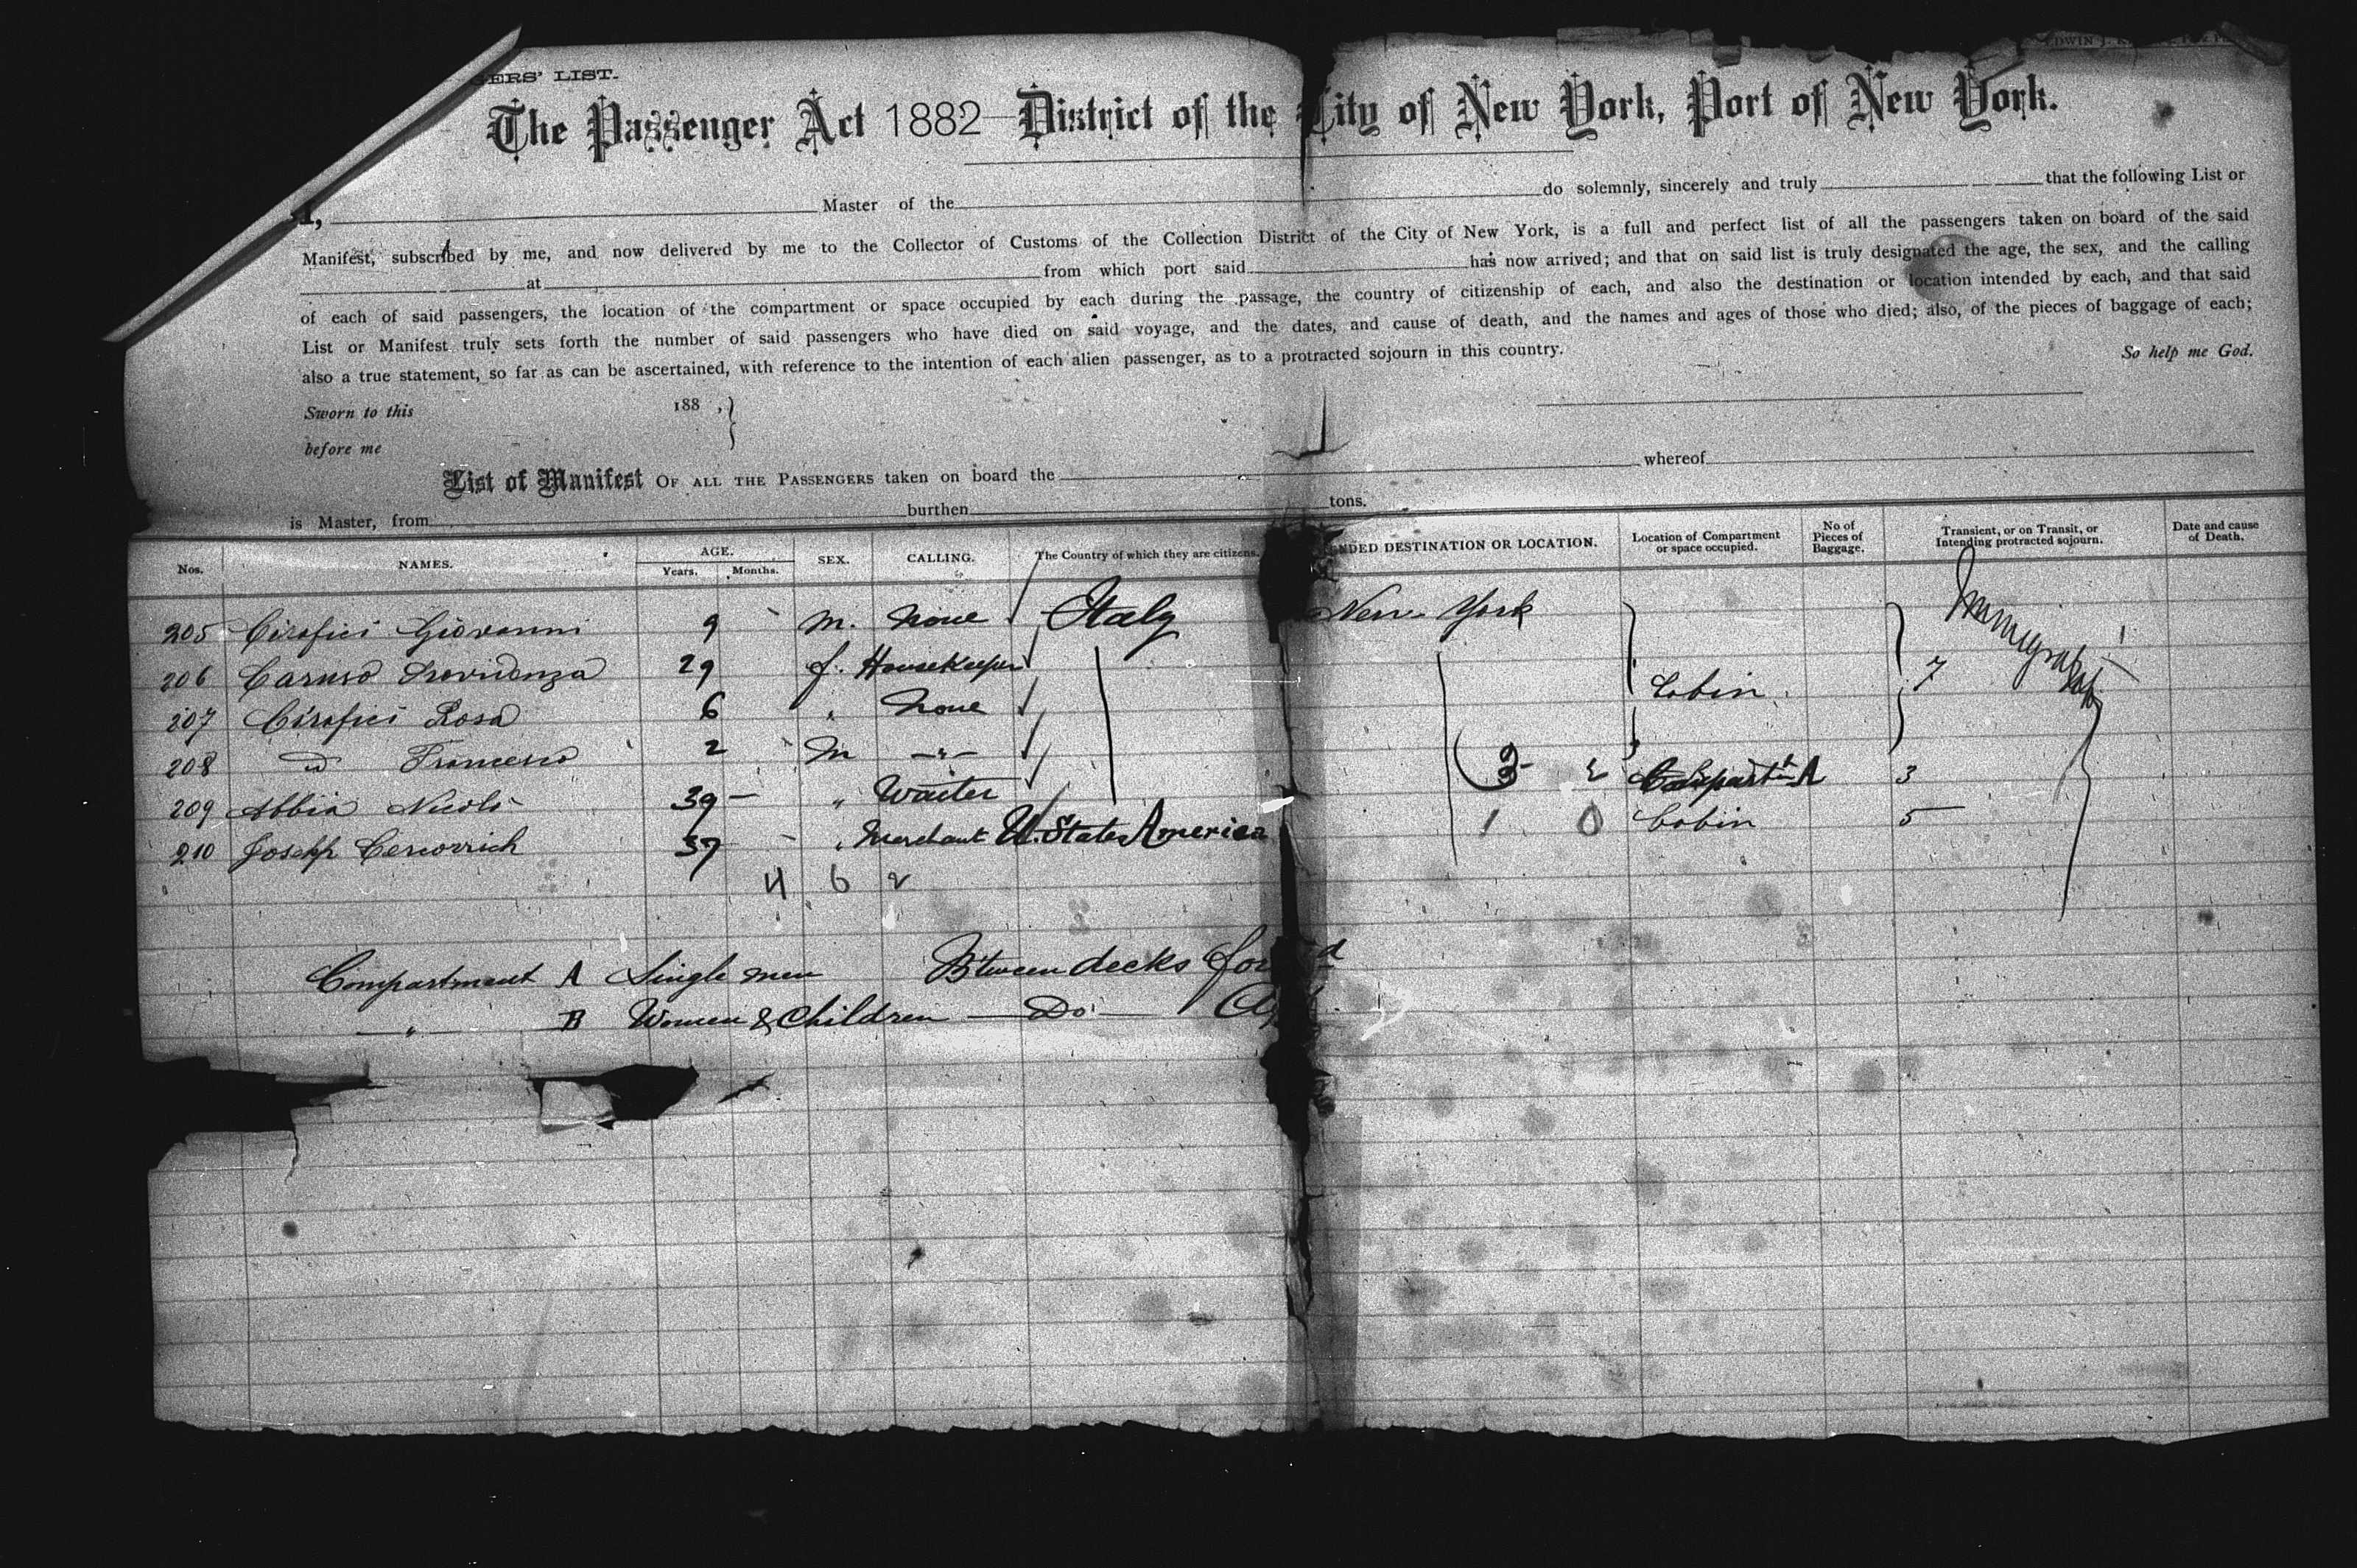 ERS' LIST.
The Passenger Act 1882 District of the City of New York, Port of New York.
I, Master of the do solemnly, sincerely and truly that the following List or
Manifest, subscribed by me, and now delivered by me to the Collector of Customs of the Collection District of the City of New York, is a full and perfect list of all the passengers taken on board of the said
at from which port said has now arrived; and that on said list is truly designated the age, the sex, and the calling
of each of said passengers, the location of the compartment or space occupied by each during the passage, the country of citizenship of each, and also the destination or location intended by each, and that said
List or Manifest truly sets forth the number of said passengers who have died on said voyage, and the dates, and cause of death, and the names and ages of those who died; also, of the pieces of baggage of each;
also a true statement, so far as can be ascertained, with reference to the intention of each alien passenger, as to a protracted sojourn in this country. So help me God.
Sworn to this 188 ,
before me
List of Manifest OF ALL THE PASSENGERS taken on board the whereof
is Master, from burthen tons.
Nos. NAMES. AGE. Years. Months. SEX. CALLING. The Country of which they are citizens. NDED DESTINATION OR LOCATION. Location of Compartment or space occupied. No of Pieces of Baggage. Transient, or on Transit, or Intending protracted sojourn. Date and cause of Death.
205 Cirafici Giovanni 9 M. None Italy New York
206 Caruso Providenza 29 f. Housekeeper Cabin 7
207 Cirafici Rosa 6 " None
208 Francesco 2 M —"—
209 Abbia Nicolo 39 " Waiter 3 2 A 3
210 Joseph 37 " Merchant U. States America 1 0 Cabin 5
4 6 2
Compartment A Single men B'tween decks
" B Women & Children —Do—